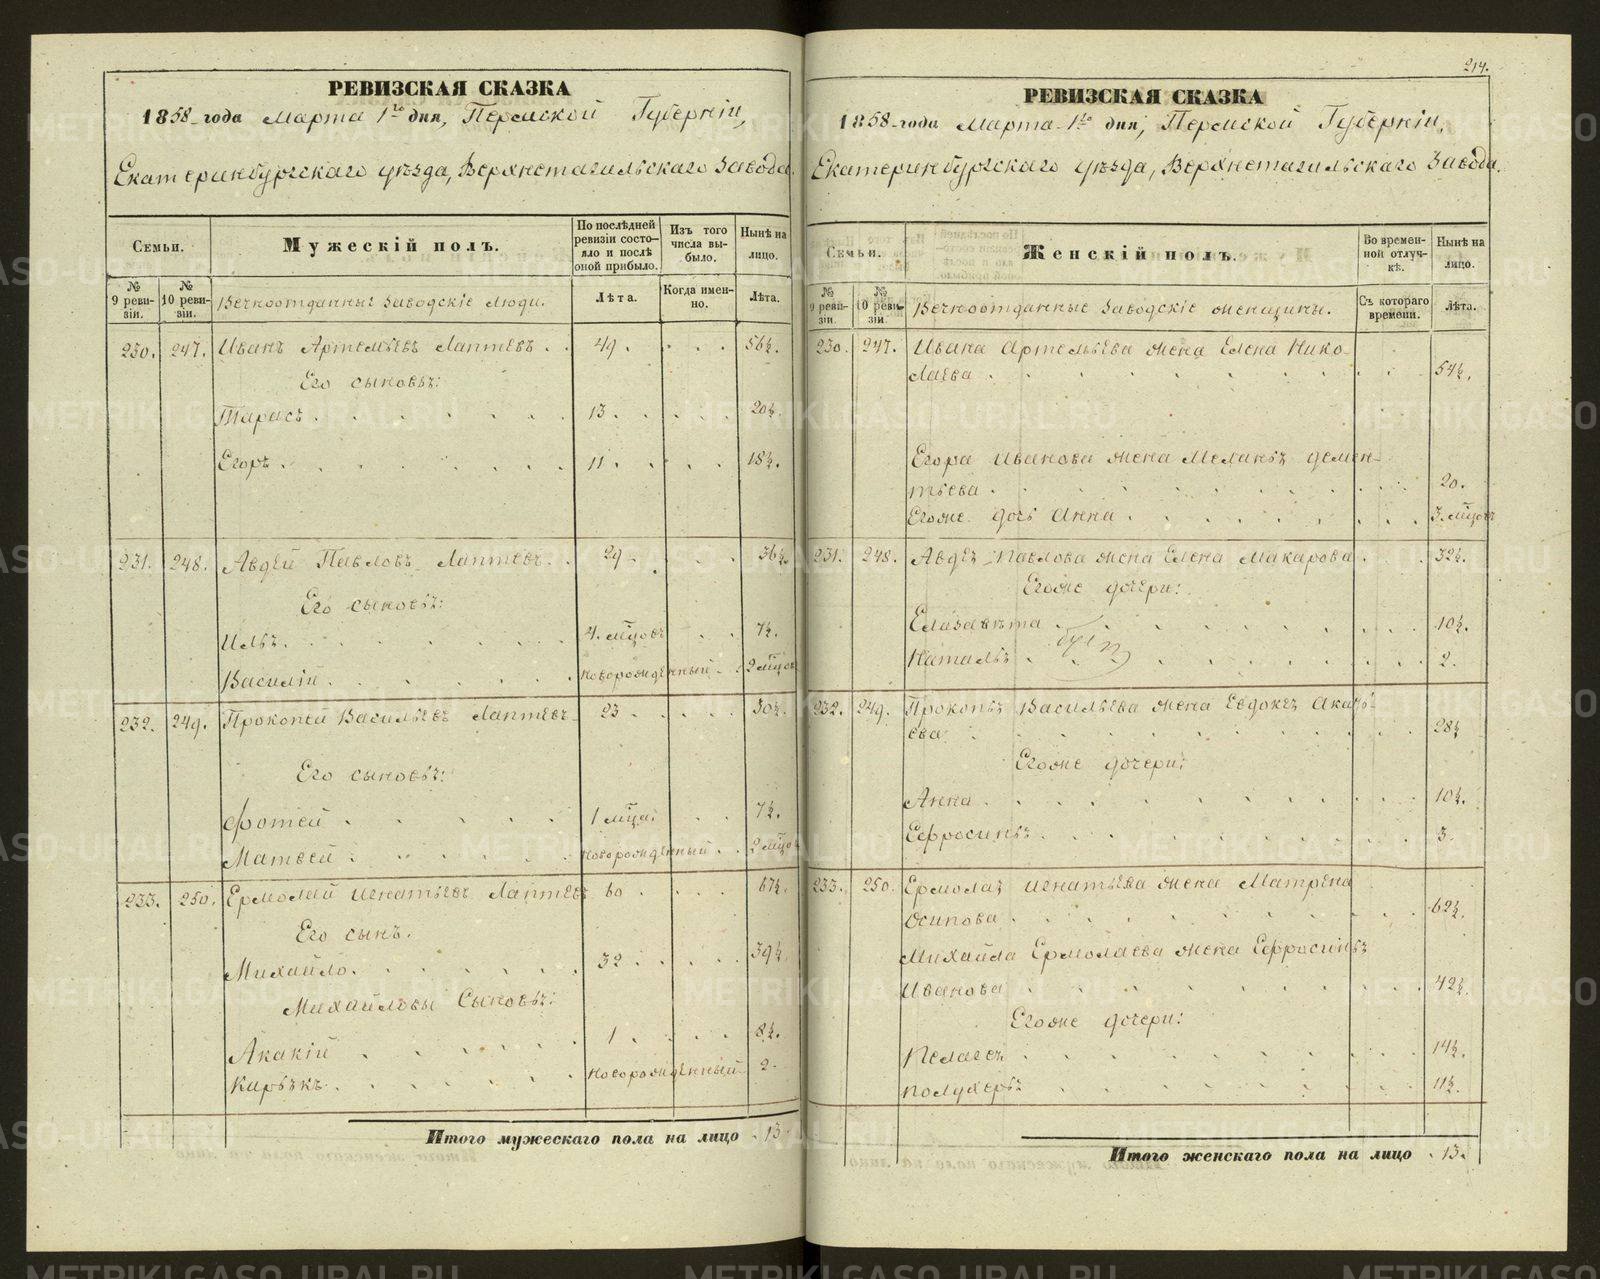 РЕВИЗСКАЯ СКАЗКА
1858 года Марта 1го дня, Пермской Губерніи,
Екатеринбургскаго уѣзда, Верхнетагильскаго Завода.
Семьи.
Мужескій полъ.
По послѣдней ревизіи состояло и послѣ оной прибыло.
Изъ того числа выбыло.
Нынѣ на лицо.
№ 9 ревизіи.
№ 10 ревизіи.
Вечноотданные Заводскіе Люди.
Лѣта.
Когда именно.
Лѣта.
230. 247. Иванъ Артемьевъ Лаптевъ . . 49. . . . 56½.
Его сыновья:
Тарасъ . . . 13. . . . 20½.
Егоръ . . . 11. . . . 18½.
231. 248. Авдей Павловъ Лаптевъ . . 29. . . 36½.
Его сыновья:
Илья . . . 4. мѣсцовъ . . 7½.
Василій . . . новорожденный . . 2 мѣсцов
232. 249. Прокопей Васильевъ Лаптевъ 23 . . . . 30½.
Его сыновья:
Фотей . . . 1 мѣсца. . . 7½.
Матвей . . . новорожденный . . 2 мѣсцов
233. 250. Ермолай Игнатьевъ Лаптевъ 60 . . . 67½.
Его сынъ.
Михайло . . . 32 . . . . 39½.
Михайловы Сыновья:
Акакій . . . 1 . . . . 8½.
Карьякъ . . . новорожденный 2.
Итого мужескаго пола на лицо . 13
214.
РЕВИЗСКАЯ СКАЗКА
1858 года Марта 1го дня, Пермской Губерніи,
Екатеринбургскаго уѣзда, Верхнетагильскаго Завода.
Семьи.
Женскій полъ.
Во временной отлучкѣ.
Нынѣ на лицо.
№ 9 ревизіи.
№ 10 ревизіи.
Вечноотданные Заводскіе женщины.
Съ котораго времени.
Лѣта.
230. 247. Ивана Артемьева жена Елена Нико-
лаева . . . 54½.
Егора Иванова жена Меланья Демен-
тьева . . . 20.
Егоже дочь Анна . . . 3. мѣсцовъ
231. 248. Авдея Павлова жена Елена Макарова . . . 32½.
Егоже дочери:
Елизавѣта . . . 10½.
Наталья . . . 2.
232. 249. Прокопья Васильева жена Евдокея Акакь-
ева . . . 28½
Егоже дочери:
Анна . . . 10½.
Ефросинья . . . 3.
233. 250. Ермолая Игнатьева жена Матрена
Осипова . . . 62½.
Михайла Ермолаева жена Ефросинья
Иванова . . . 42½.
Егоже дочери:
Пелагея . . . 14½.
Полухерья . . . 11½.
Итого женскаго пола на лицо . 13.
METRIKI.GASO-URAL.RU